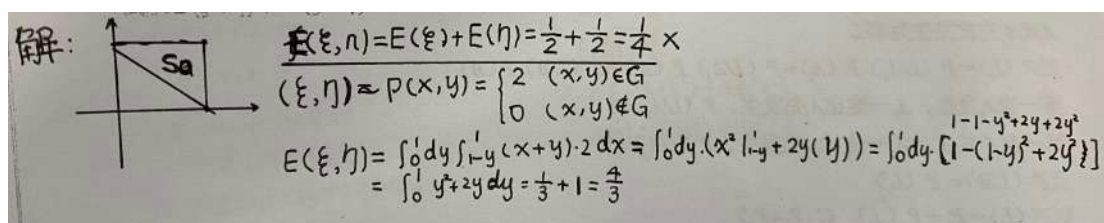 解:
Sa
E(ξ,η)=E(ξ)+E(η)=1/2+1/2=1/4 ×
(ξ,η)~P(x,y)={2 (x,y)∈G
0 (x,y)∉G
1-1-y²+2y+2y²
E(ξ,η)=∫₀¹dy∫₁₋y¹(x+y)·2dx=∫₀¹dy·(x²|₁₋y¹+2y(y))=∫₀¹dy·[1-(1-y)²+2y²}]
=∫₀¹y²+2y dy=1/3+1=4/3